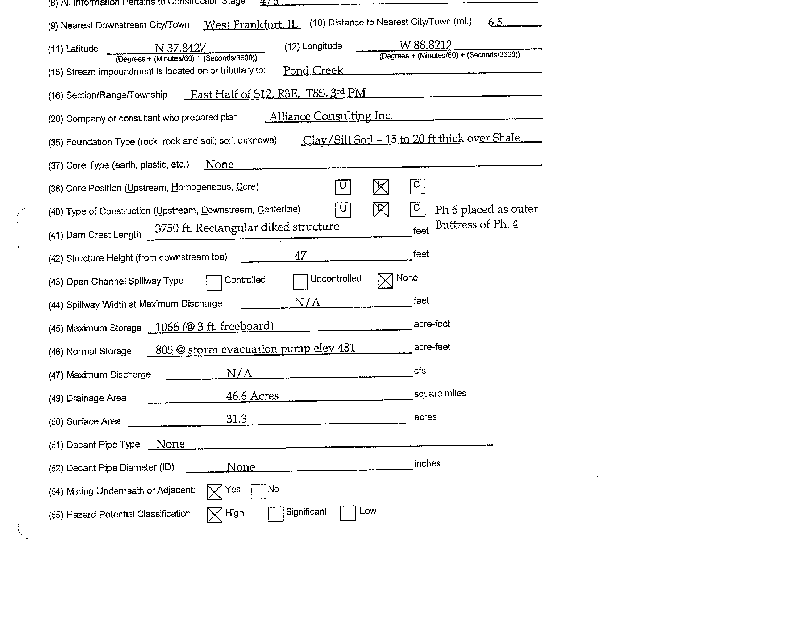 (8) All Information Pertains to Construction Stage 4/5
(9) Nearest Downstream City/Town West Frankfort, IL (10) Distance to Nearest City/Town (mi.) 6.5
(11) Latitude N 37.8427 (12) Longitude W 86.8212
(Degrees + (Minutes/60) + (Seconds/3600)) (Degrees + (Minutes/60) + (Seconds/3600))
(15) Stream impoundment is located on or tributary to: Pond Creek
(16) Section/Range/Township East Half of S12, R3E, T8S, 3rd PM
(20) Company or consultant who prepared plan Alliance Consulting Inc.
(35) Foundation Type (rock, rock and soil, soil, unknown) Clay/Sill Soil - 15 to 20 ft thick over Shale
(37) Core Type (earth, plastic, etc.) None
(38) Core Position (Upstream, Homogeneous, Core) U H C
(40) Type of Construction (Upstream, Downstream, Centerline) U D C Ph 5 placed as outer
(41) Dam Crest Length 3750 ft. Rectangular diked structure feet Buttress of Ph. 4
(42) Structure Height (from downstream toe) 47 feet
(43) Open Channel Spillway Type Controlled Uncontrolled None
(44) Spillway Width at Maximum Discharge N/A feet
(45) Maximum Storage 1066 (@ 3 ft. freeboard) acre-feet
(46) Normal Storage 805 @ storm evacuation pump elev 431 acre-feet
(47) Maximum Discharge N/A cfs
(49) Drainage Area 46.6 Acres square miles
(50) Surface Area 31.3 acres
(51) Decant Pipe Type None
(52) Decant Pipe Diameter (ID) None inches
(54) Mining Underneath or Adjacent: Yes No
(55) Hazard Potential Classification High Significant Low